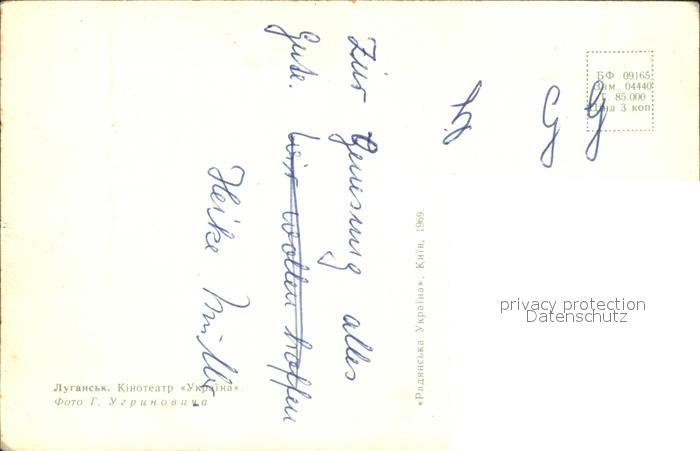 Zur Genesung alles
Gute. wir wollen hoffen
Heike Müller.
БФ 09165
Зам. 04440
Т. 85.000
Ціна 3 коп.
«Радянська Україна», Київ, 1969.
privacy protection
Datenschutz
Луганськ. Кінотеатр «Україна».
Фото Г. Угриновича